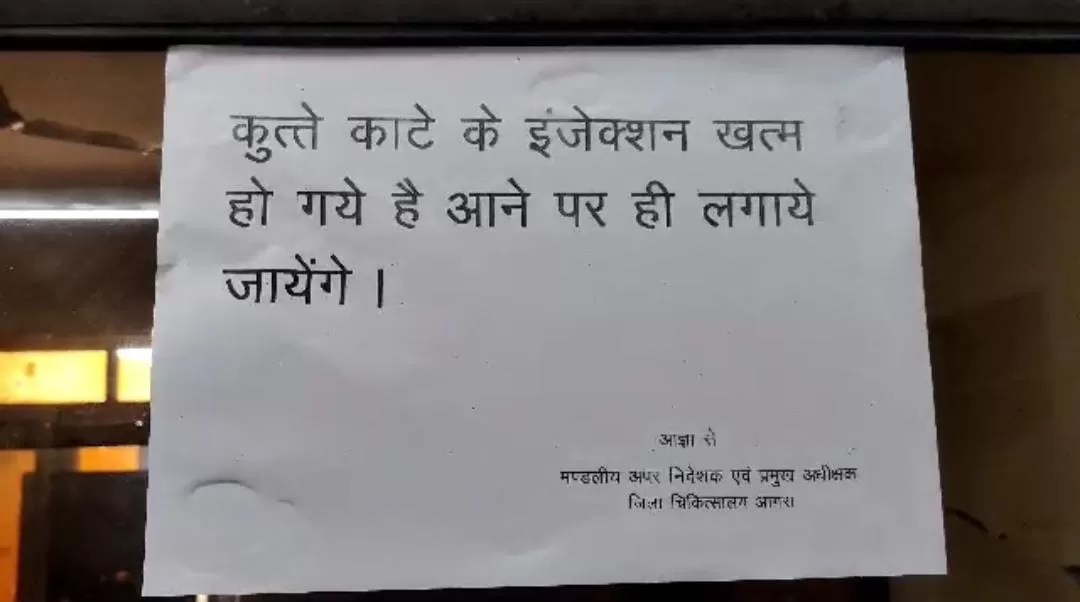 कुत्ते काटे के इंजेक्शन खत्म
हो गये है आने पर ही लगाये
जायेंगे ।
आज्ञा से
मण्डलीय अपर निदेशक एवं प्रमुख अधीक्षक
जिला चिकित्सालय आगरा